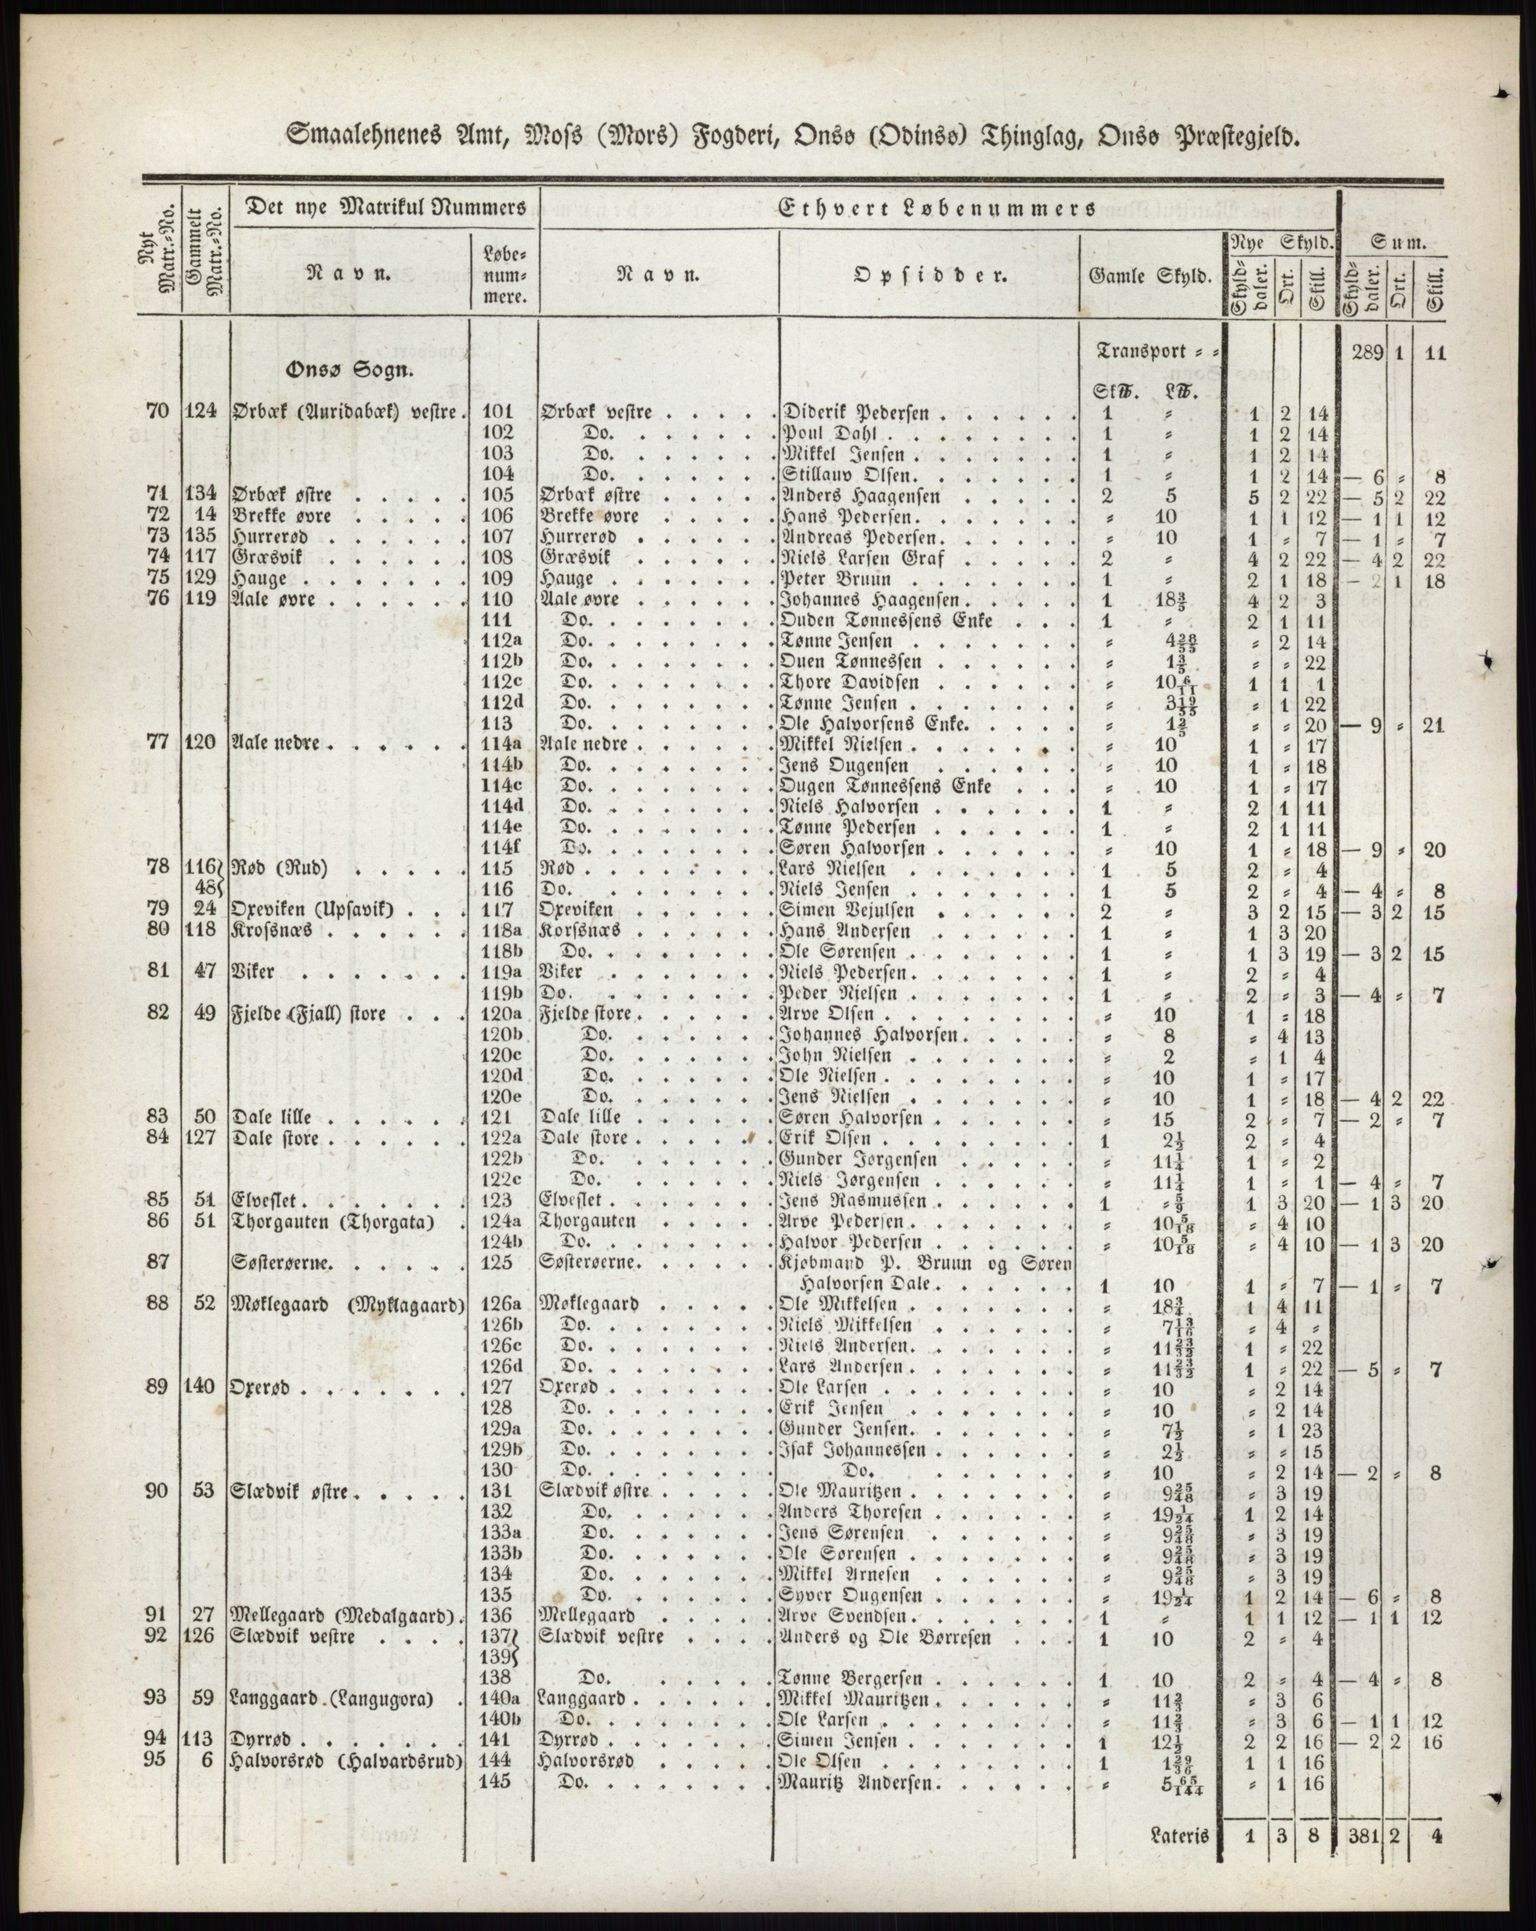 Smaalehnenes Amt, Moss (Mors) Fogderi, Onsø (Odinsø) Thinglag, Onsø Præstegjeld.
Nyt Matr.-No. Gammelt Matr.-No. Det nye Matrikul Nummers Ethvert Løbenummers
Navn. Løbe-nummere. Navn. Opsidder. Gamle Skyld. Nye Skyld. Sum.
Skylddaler. Ort. Skill. Skylddaler. Ort. Skill.
Transport - - 289 1 11
Onsø Sogn.
Sk℔. L℔.
70 124 Ørbæk (Auridabæk) vestre. 101 Ørbæk vestre Diderik Pedersen 1 - 1 2 14
102 Do. Poul Dahl 1 - 1 2 14
103 Do. Mikkel Jensen 1 - 1 2 14
104 Do. Stillauv Olsen 1 - 1 2 14 — 6 - 8
71 134 Ørbæk østre 105 Ørbæk østre Anders Haagensen 2 5 5 2 22 — 5 2 22
72 14 Brekke øvre 106 Brekke øvre Hans Pedersen - 10 1 1 12 — 1 1 12
73 135 Hurrerød 107 Hurrerød Andreas Pedersen - 10 1 - 7 — 1 - 7
74 117 Græsvik 108 Græsvik Niels Larsen Graf 2 - 4 2 22 — 4 2 22
75 129 Hauge 109 Hauge Peter Bruun 1 - 2 1 18 — 2 1 18
76 119 Aale øvre 110 Aale øvre Johannes Haagensen 1 18 3/5 4 2 3
111 Do. Ouden Tønnessens Enke 1 - 2 1 11
112a Do. Tønne Jensen - 4 28/55 - 2 14
112b Do. Ouen Tønnessen - 1 3/5 - - 22
112c Do. Thore Davidsen - 10 6/11 1 1 1
112d Do. Tønne Jensen - 3 19/55 - 1 22
113 Do. Ole Halvorsens Enke. - 1 2/5 - - 20 — 9 - 21
77 120 Aale nedre 114a Aale nedre Mikkel Nielsen - 10 1 - 17
114b Do. Jens Ougensen - 10 1 - 18
114c Do. Ougen Tønnessens Enke - 10 1 - 17
114d Do. Niels Halvorsen 1 - 2 1 11
114e Do. Tønne Pedersen 1 - 2 1 11
114f Do. Søren Halvorsen - 10 1 - 18 — 9 - 20
78 116 Rød (Rud) 115 Rød Lars Nielsen 1 5 2 - 4
48 116 Do. Niels Jensen 1 5 2 - 4 — 4 - 8
79 24 Oxeviken (Upsavik) 117 Oxeviken Simen Vejulsen 2 - 3 2 15 — 3 2 15
80 118 Krossnæs 118a Korssnæs Hans Andersen 1 - 1 3 20
118b Do. Ole Sørensen 1 - 1 3 19 — 3 2 15
81 47 Viker 119a Viker Niels Pedersen 1 - 2 - 4
119b Do. Peder Nielsen 1 - 2 - 3 — 4 - 7
82 49 Fjelde (Fjall) store 120a Fjelde store Arve Olsen - 10 1 - 18
120b Do. Johannes Halvorsen - 8 - 4 13
120c Do. John Nielsen - 2 - 1 4
120d Do. Ole Nielsen - 10 1 - 17
120e Do. Jens Nielsen - 10 1 - 18 — 4 2 22
83 50 Dale lille 121 Dale lille Søren Halvorsen - 15 2 - 7 — 2 - 7
84 127 Dale store 122a Dale store Erik Olsen 1 2 1/2 2 - 4
122b Do. Gunder Jørgensen - 11 1/4 1 - 2
122c Do. Niels Jørgensen - 11 1/4 1 - 1 — 4 - 7
85 51 Elveslet 123 Elveslet Jens Rasmussen 1 - 5/9 1 3 20 — 1 3 20
86 51 Thorgauten (Thorgata) 124a Thorgauten Arve Pedersen - 10 5/18 - 4 10
124b Do. Halvor Pedersen - 10 5/18 - 4 10 — 1 3 20
87 Søsterøerne. 125 Søsterøerne. Kjøbmand P. Bruun og Søren
Halvorsen Dale 1 10 1 - 7 — 1 - 7
88 52 Møklegaard (Myklagaard) 126a Møklegaard Ole Mikkelsen - 18 3/4 1 4 11
126b Do. Niels Mikkelsen - 7 13/16 - 4 -
126c Do. Niels Andersen - 11 23/32 1 - 22
126d Do. Lars Andersen - 11 23/32 1 - 22 — 5 - 7
89 140 Oxerød 127 Oxerød Ole Larsen - 10 - 2 14
128 Do. Erik Jensen - 10 - 2 14
129a Do. Gunder Jensen - 7 1/2 - 1 23
129b Do. Isak Johannessen - 2 1/2 - - 15
130 Do. Do. - 10 - 2 14 — 2 - 8
90 53 Slædvik østre 131 Slædvik østre Ole Mauritzen - 9 25/48 - 3 19
132 Do. Anders Thoresen - 19 1/24 1 2 14
133a Do. Jens Sørensen - 9 25/48 - 3 19
133b Do. Ole Sørensen - 9 25/48 - 3 19
134 Do. Mikkel Arnesen - 9 25/48 - 3 19
135 Do. Syver Ougensen - 19 1/24 1 2 14 — 6 - 8
91 27 Mellegaard (Medalgaard). 136 Mellegaard Arve Svendsen 1 - 1 1 12 — 1 1 12
92 126 Slædvik vestre 137 Slædvik vestre Anders og Ole Børresen 1 10 2 - 4
139
138 Do. Tønne Bergersen 1 10 2 - 4 — 4 - 8
93 59 Langgaard (Langugora) 140a Langgaard Mikkel Mauritzen - 11 2/3 - 3 6
140b Do. Ole Larsen - 11 2/3 - 3 6 — 1 1 12
94 113 Dyrrød 141 Dyrrød Simen Jensen 1 12 1/2 2 2 16 — 2 2 16
95 6 Halvorsrød (Halvardsrud) 144 Halvorsrød Ole Olsen 1 1 29/36 1 1 16
145 Do. Mauritz Andersen - 5 65/144 - 1 16
Lateris 1 3 8 381 2 4